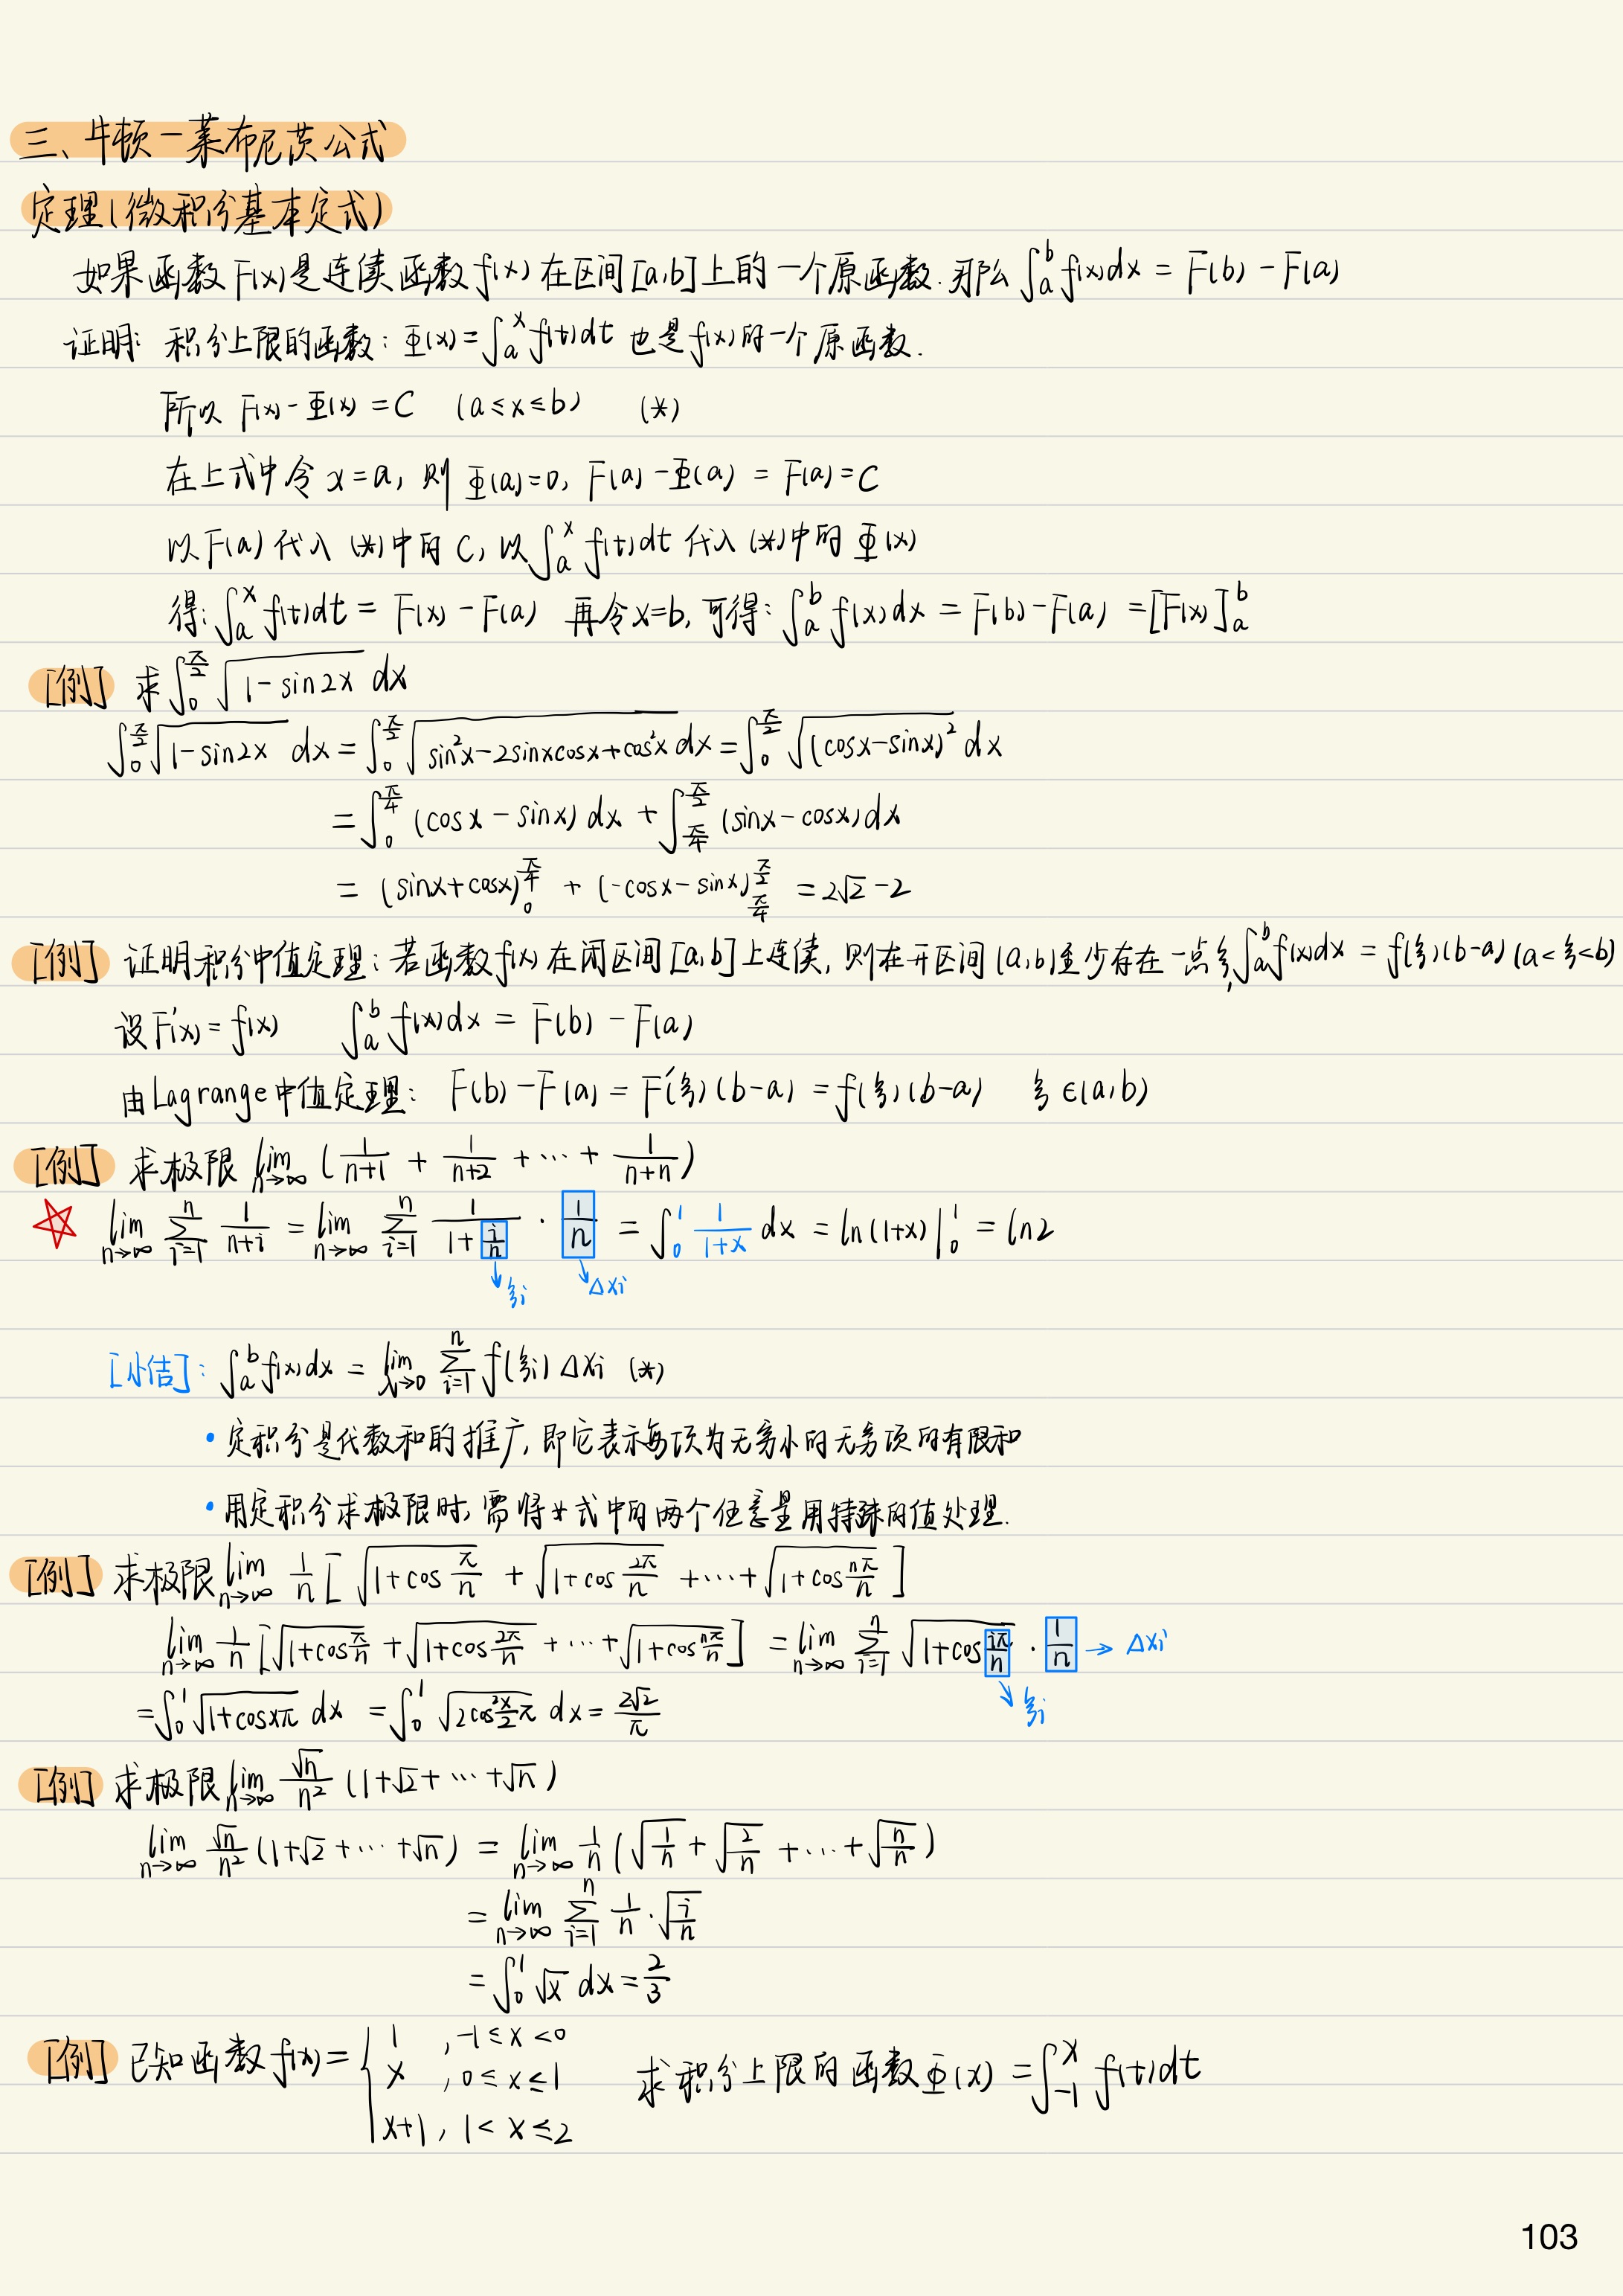 三、牛顿-莱布尼茨公式
定理(微积分基本定式)
如果函数F(x)是连续函数f(x)在区间[a,b]上的一个原函数.那么 ∫_a^b f(x)dx = F(b) - F(a)
证明: 积分上限的函数: Φ(x)=∫_a^x f(t)dt 也是f(x)的一个原函数.
所以 F(x) - Φ(x) = C (a≤x≤b) (*)
在上式中令 x=a, 则 Φ(a)=0, F(a) - Φ(a) = F(a) = C
以F(a)代入(*)中的C, 以∫_a^x f(t)dt 代入(*)中的Φ(x)
得: ∫_a^x f(t)dt = F(x) - F(a) 再令x=b, 可得: ∫_a^b f(x)dx = F(b) - F(a) = [F(x)]_a^b
[例] 求∫_0^{π/2} √(1-sin2x) dx
∫_0^{π/2} √(1-sin2x) dx = ∫_0^{π/2} √(sin²x-2sinxcosx+cos²x) dx = ∫_0^{π/2} √((cosx-sinx)²) dx
= ∫_0^{π/4} (cosx - sinx) dx + ∫_{π/4}^{π/2} (sinx - cosx) dx
= (sinx+cosx)_0^{π/4} + (-cosx - sinx)_{π/4}^{π/2} = 2√2 - 2
[例] 证明积分中值定理: 若函数f(x)在闭区间[a,b]上连续, 则在开区间(a,b)至少存在一点ξ, ∫_a^b f(x)dx = f(ξ)(b-a) (a<ξ<b)
设F'(x)=f(x) ∫_a^b f(x)dx = F(b) - F(a)
由Lagrange中值定理: F(b) - F(a) = F'(ξ)(b-a) = f(ξ)(b-a) ξ∈(a,b)
[例] 求极限 lim_{n→∞} (1/(n+1) + 1/(n+2) + ⋯ + 1/(n+n))
☆ lim_{n→∞} ∑_{i=1}^n 1/(n+i) = lim_{n→∞} ∑_{i=1}^n 1/(1+i/n) · 1/n = ∫_0^1 1/(1+x) dx = ln(1+x)|_0^1 = ln2
↓ξi ↘Δxi
[小结]: ∫_a^b f(x)dx = lim_{λ→0} ∑_{i=1}^n f(ξi) Δxi (*)
• 定积分是代数和的推广, 即它表示每项为无穷小的无穷项的有限和
• 用定积分求极限时, 需将*式中的两个任意量用特殊的值处理.
[例] 求极限 lim_{n→∞} 1/n [√(1+cos π/n) + √(1+cos 2π/n) + ⋯ + √(1+cos nπ/n)]
lim_{n→∞} 1/n [√(1+cos π/n) + √(1+cos 2π/n) + ⋯ + √(1+cos nπ/n)] = lim_{n→∞} ∑_{i=1}^n √(1+cos iπ/n) · 1/n → Δxi
= ∫_0^1 √(1+cosxπ) dx = ∫_0^1 √(2cos² x/2 π) dx = 2√2/π ↘ξi
[例] 求极限 lim_{n→∞} √n/n² (1+√2+⋯+√n)
lim_{n→∞} √n/n² (1+√2+⋯+√n) = lim_{n→∞} 1/n (√(1/n) + √(2/n) + ⋯ + √(n/n))
= lim_{n→∞} ∑_{i=1}^n 1/n · √(i/n)
= ∫_0^1 √x dx = 2/3
[例] 已知函数f(x) = { 1 , -1≤x<0
x , 0≤x≤1 求积分上限的函数Φ(x) = ∫_{-1}^x f(t)dt
x+1 , 1<x≤2
103